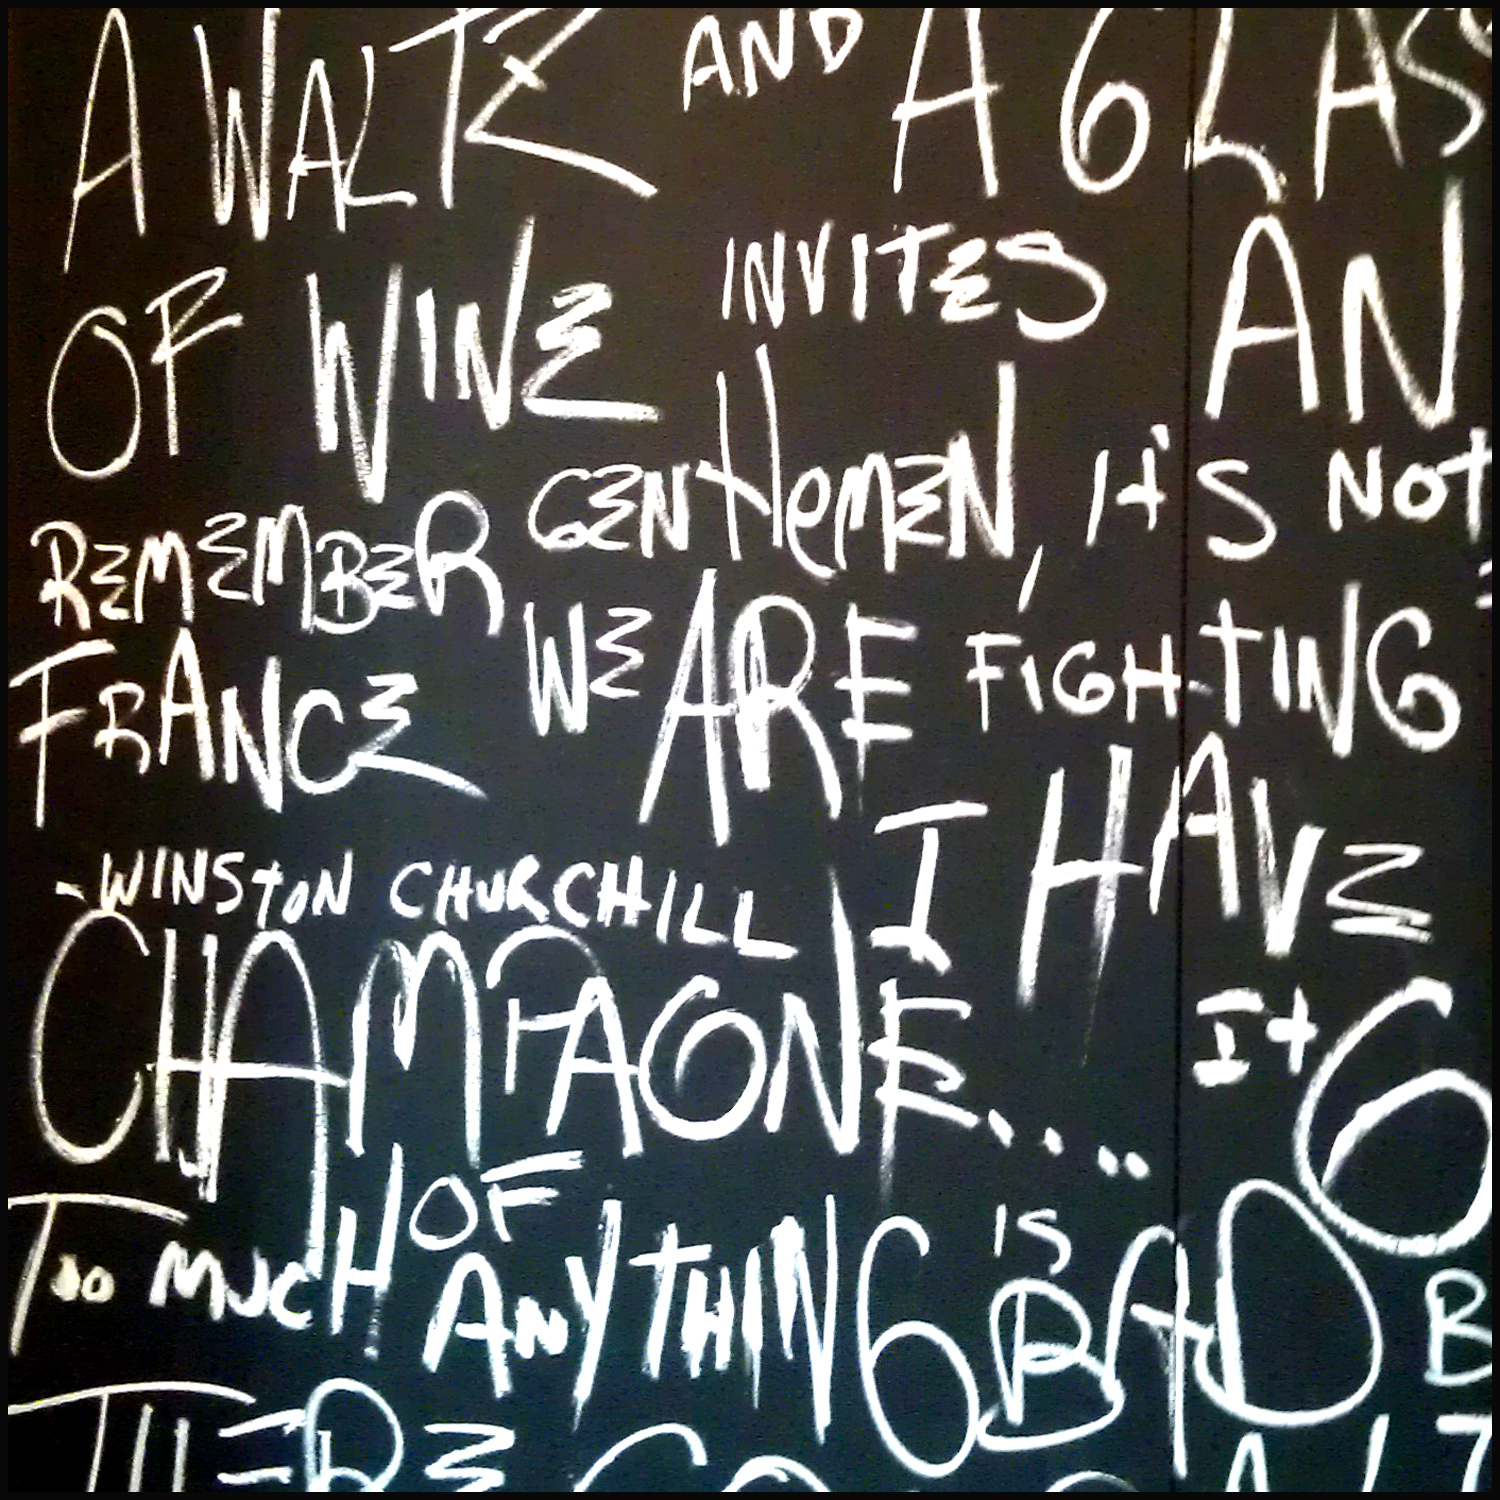 A WALTZ AND A GLAS
OF WINE INVITES AN
REMEMBER GENTLEMEN, IT'S NOT
FRANCE WE ARE FIGHTING
-WINSTON CHURCHILL I HAVE
CHAMPAGNE.... IT G
TOO MUCH OF ANYTHING IS BAD B
THERE